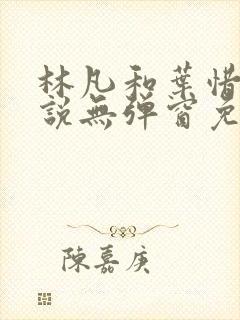 林凡和葉惜
說無彈窗免
陳嘉庚